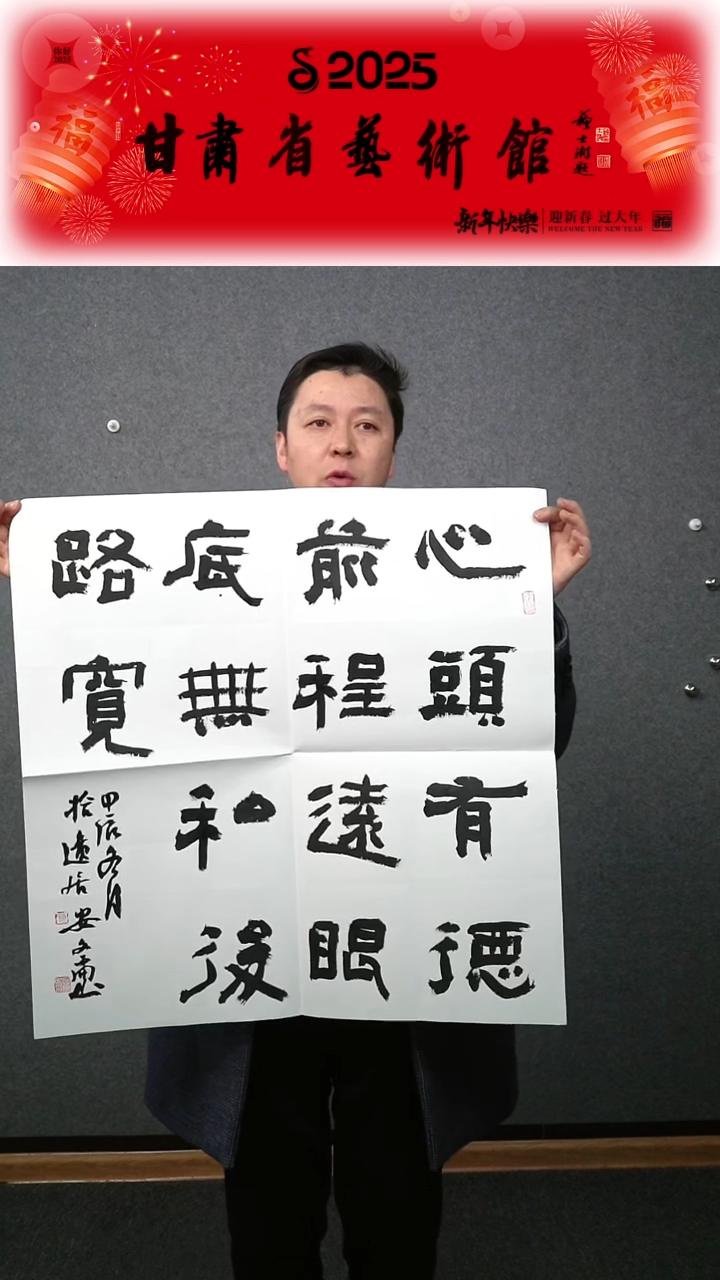 你好
2025
福
福
2025
甘肅省藝術館
新年快樂
迎新春 过大年
WELCOME THE NEW YEAR
福
心頭有德
前程遠眼
底無私後
路寬
甲辰冬月
拾遠居安文